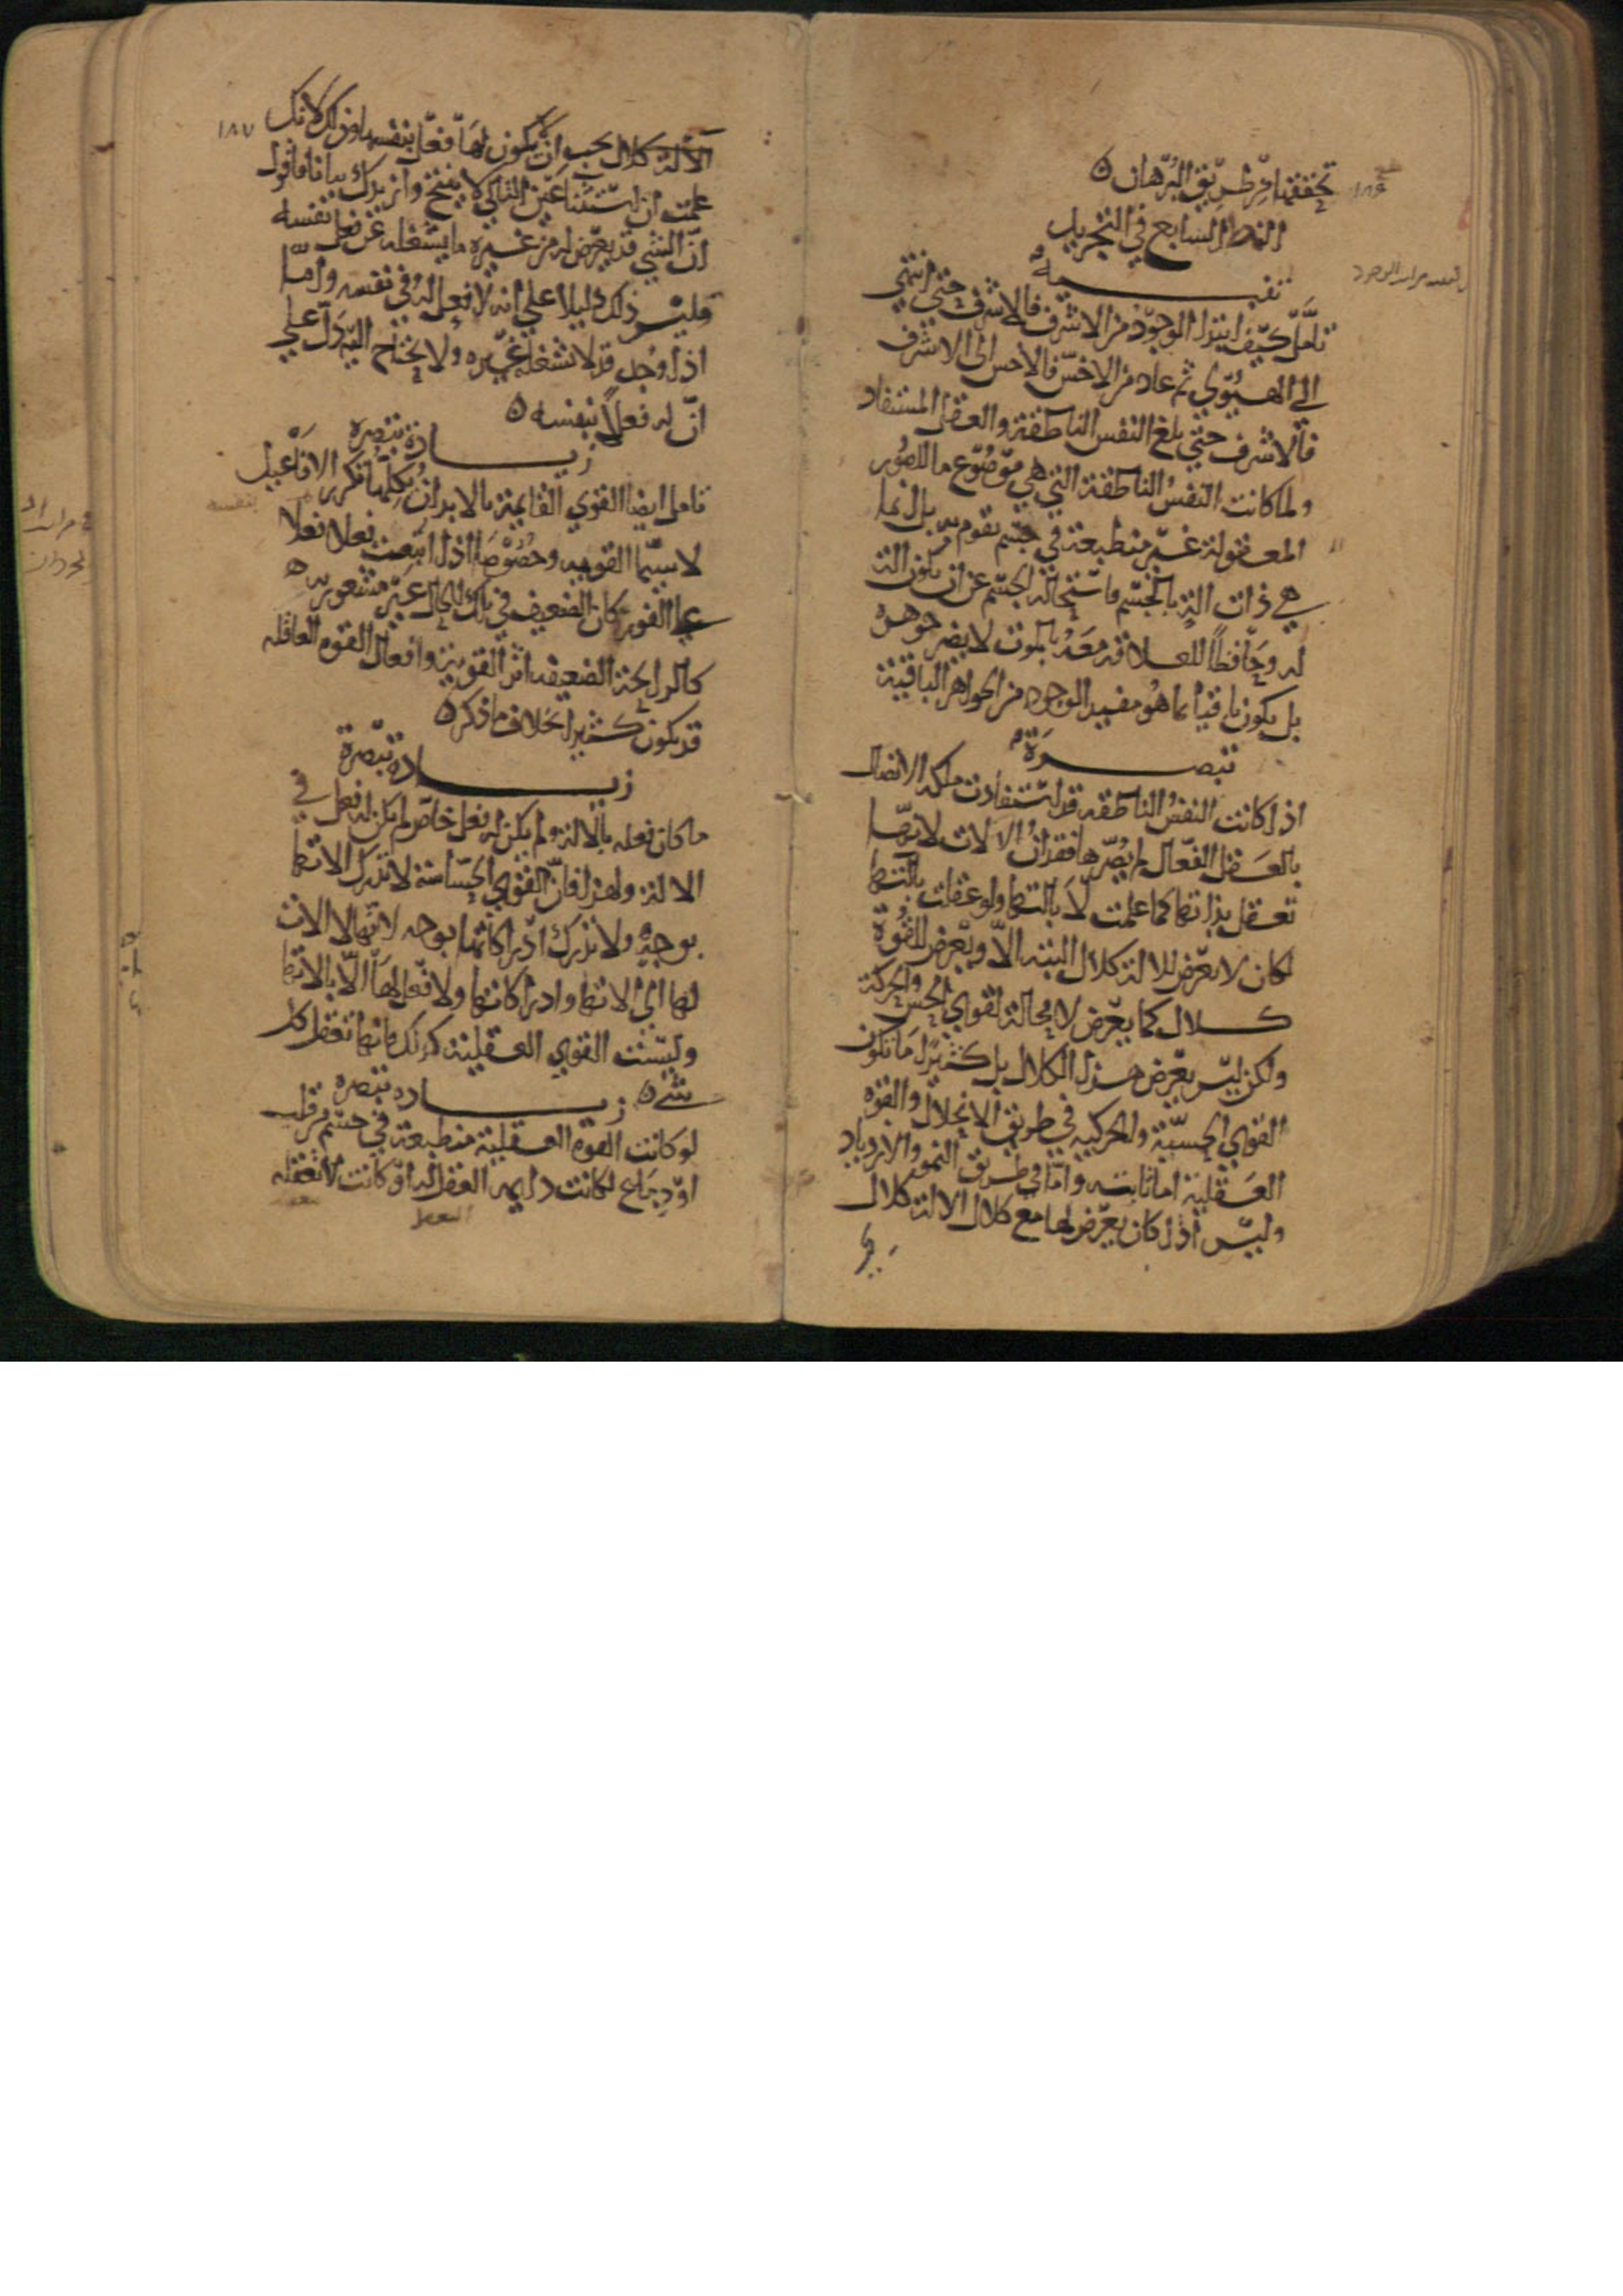 تحققها من طريق البرهان ه
النمط السابع في التجريد
تنبيه
تأمل كيف ابتدا الوجود من الاشرف فالاشرف حتى انتهى
الى الهيولى ثم عاد من الاخس فالاخس الى الاشرف
فالاشرف حتى بلغ النفس الناطقة والعقل المستفاد
ولما كانت النفس الناطقة التي هي موضوع ما للصور
المعقولة غير منطبعة في جسم تقوم به بل انما
هي ذات الة بالجسم فاستحالة الجسم عن ان يكون الة
له وحافظا للعلاقة معه بالموت لا يضر جوهره
بل يكون باقيا بما هو مفيد الوجود من الجواهر الباقية
تبصرة
اذا كانت النفس الناطقه قد استفادت ملكه الاتصال
بالعقل الفعال لم يضرها فقدان الالات لانها
تعقل بذاتها كما علمت لا بالتها ولو عقلت بالتها
لكان لا يعرض للالة كلال البته الا ويعرض للقوة
كلال كما يعرض لا محالة لقوى الحس والحركة
ولكن ليس يعرض هذا الكلال بل كثيرا ما تكون
القوى الحسية والحركيه في طريق الانحلال والقوة
العقلية اما ثابته واما في طريق النمو والازدياد
وليس اذا كان يعرض لها مع كلال الالة كلال
١٨٦
١٨٧
الالة كلال يجب ان يكون لها فعل بنفسها وذلك لانك
علمت ان استثنا عين التالي لا ينتج وازيدك بيانا فاقول
ان الشي قد يعرض له من غيره ما يشغله عن فعل نفسه
فليس ذلك دليلا على انه لا فعل له في نفسه واما
اذا وجد قد لا يشغله غيره ولا يحتاج اليه دل على
ان له فعلا بنفسه ه
زيادة تبصرة
تامل ايضا القوى القايمة بالابدان يكلها تكرر الافاعيل
لا سيما القويه وخصوصا اذا اتبعت فعلا فعلا
على الفور كان الضعيف في تلك الحال غير مشعور به
كالرايحة الضعيفه اثر القوية وافعال القوة العاقله
قد يكون كثيرا بخلاف ما ذكر ه
زياده تبصرة
ما كان فعله بالالة ولم يكن له فعل خاص لم يكن له فعل في
الالة ولهذا فان القوى الحساسة لا تدرك الاتها
بوجه ولا تدرك ادراكاتها بوجه لانها لا الات
لها الى الاتها وادراكاتها ولا فعل لها الا بالاتها
وليست القوى العقلية كذلك فانها تعقل كل
شي ه
زياده تبصره
لو كانت القوة العقلية منطبعة في جسم من قلب
او دماغ لكانت دايمه العقل له او كانت لا تعقله